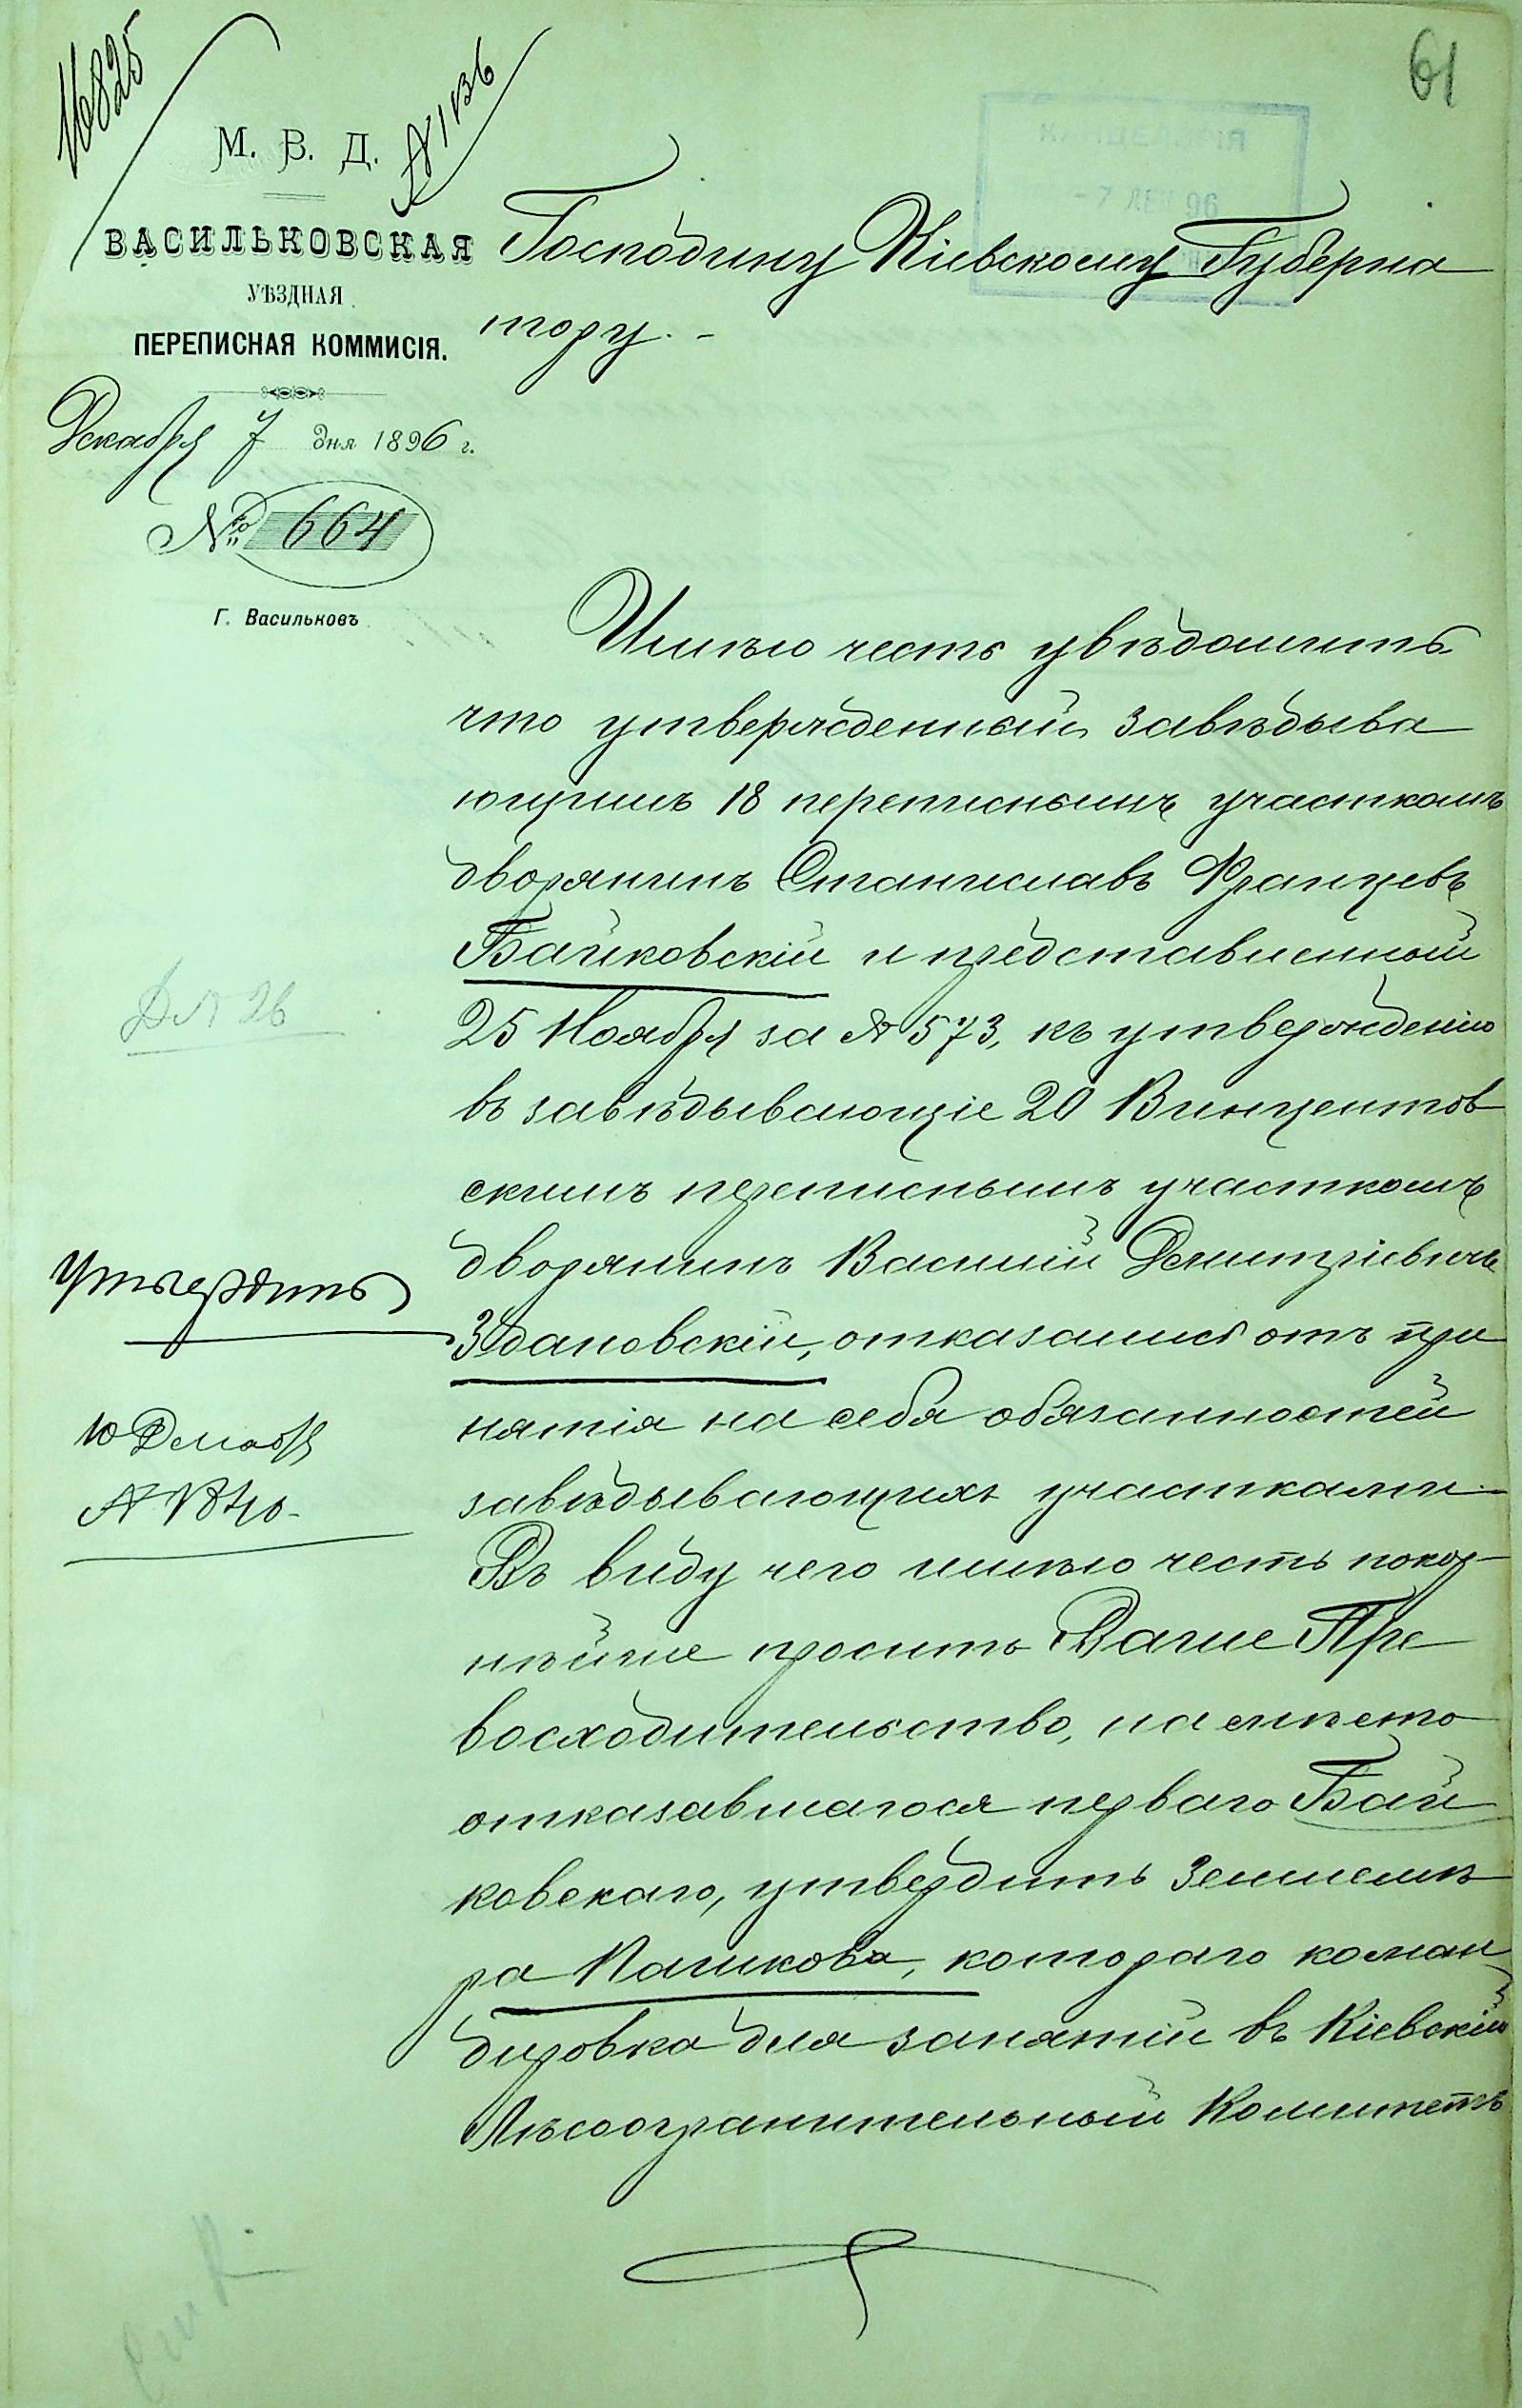 61
16825
М. В. Д.
ВАСИЛЬКОВСКАЯ
УѢЗДНАЯ
ПЕРЕПИСНАЯ КОММИСІЯ.
Декабря 7 дня 1896 г.
№ 664
Г. Васильковъ
Господину Кіевскому Губерна
тору.-
Имѣю честь увѣдомить
что утвержденный завѣдыва
ющимъ 18 переписнымъ участкомъ
дворянинъ Станиславъ Францевъ
Байковскій и представленный
25 Ноября за № 573, къ утвержденію
въ завѣдывающіе 20 Винцентов
скимъ переписнымъ участкомъ
дворянинъ Василій Демитріевичъ
Здановскій, отказались отъ при
нятія на себя обязанностей
завѣдывающихъ участками.
Въ виду чего имѣю честь покор-
нѣйше просить Ваше Пре
восходительство, на мѣсто
отказавшагося перваго Бай
ковскаго, утвердить землемѣ
ра Пашкова, котораго коман
дировка для занятій въ Кіевскій
Лѣсоохранительный Комитетъ
Д № 26
Утвердить
10 Декабря
№ 1840.